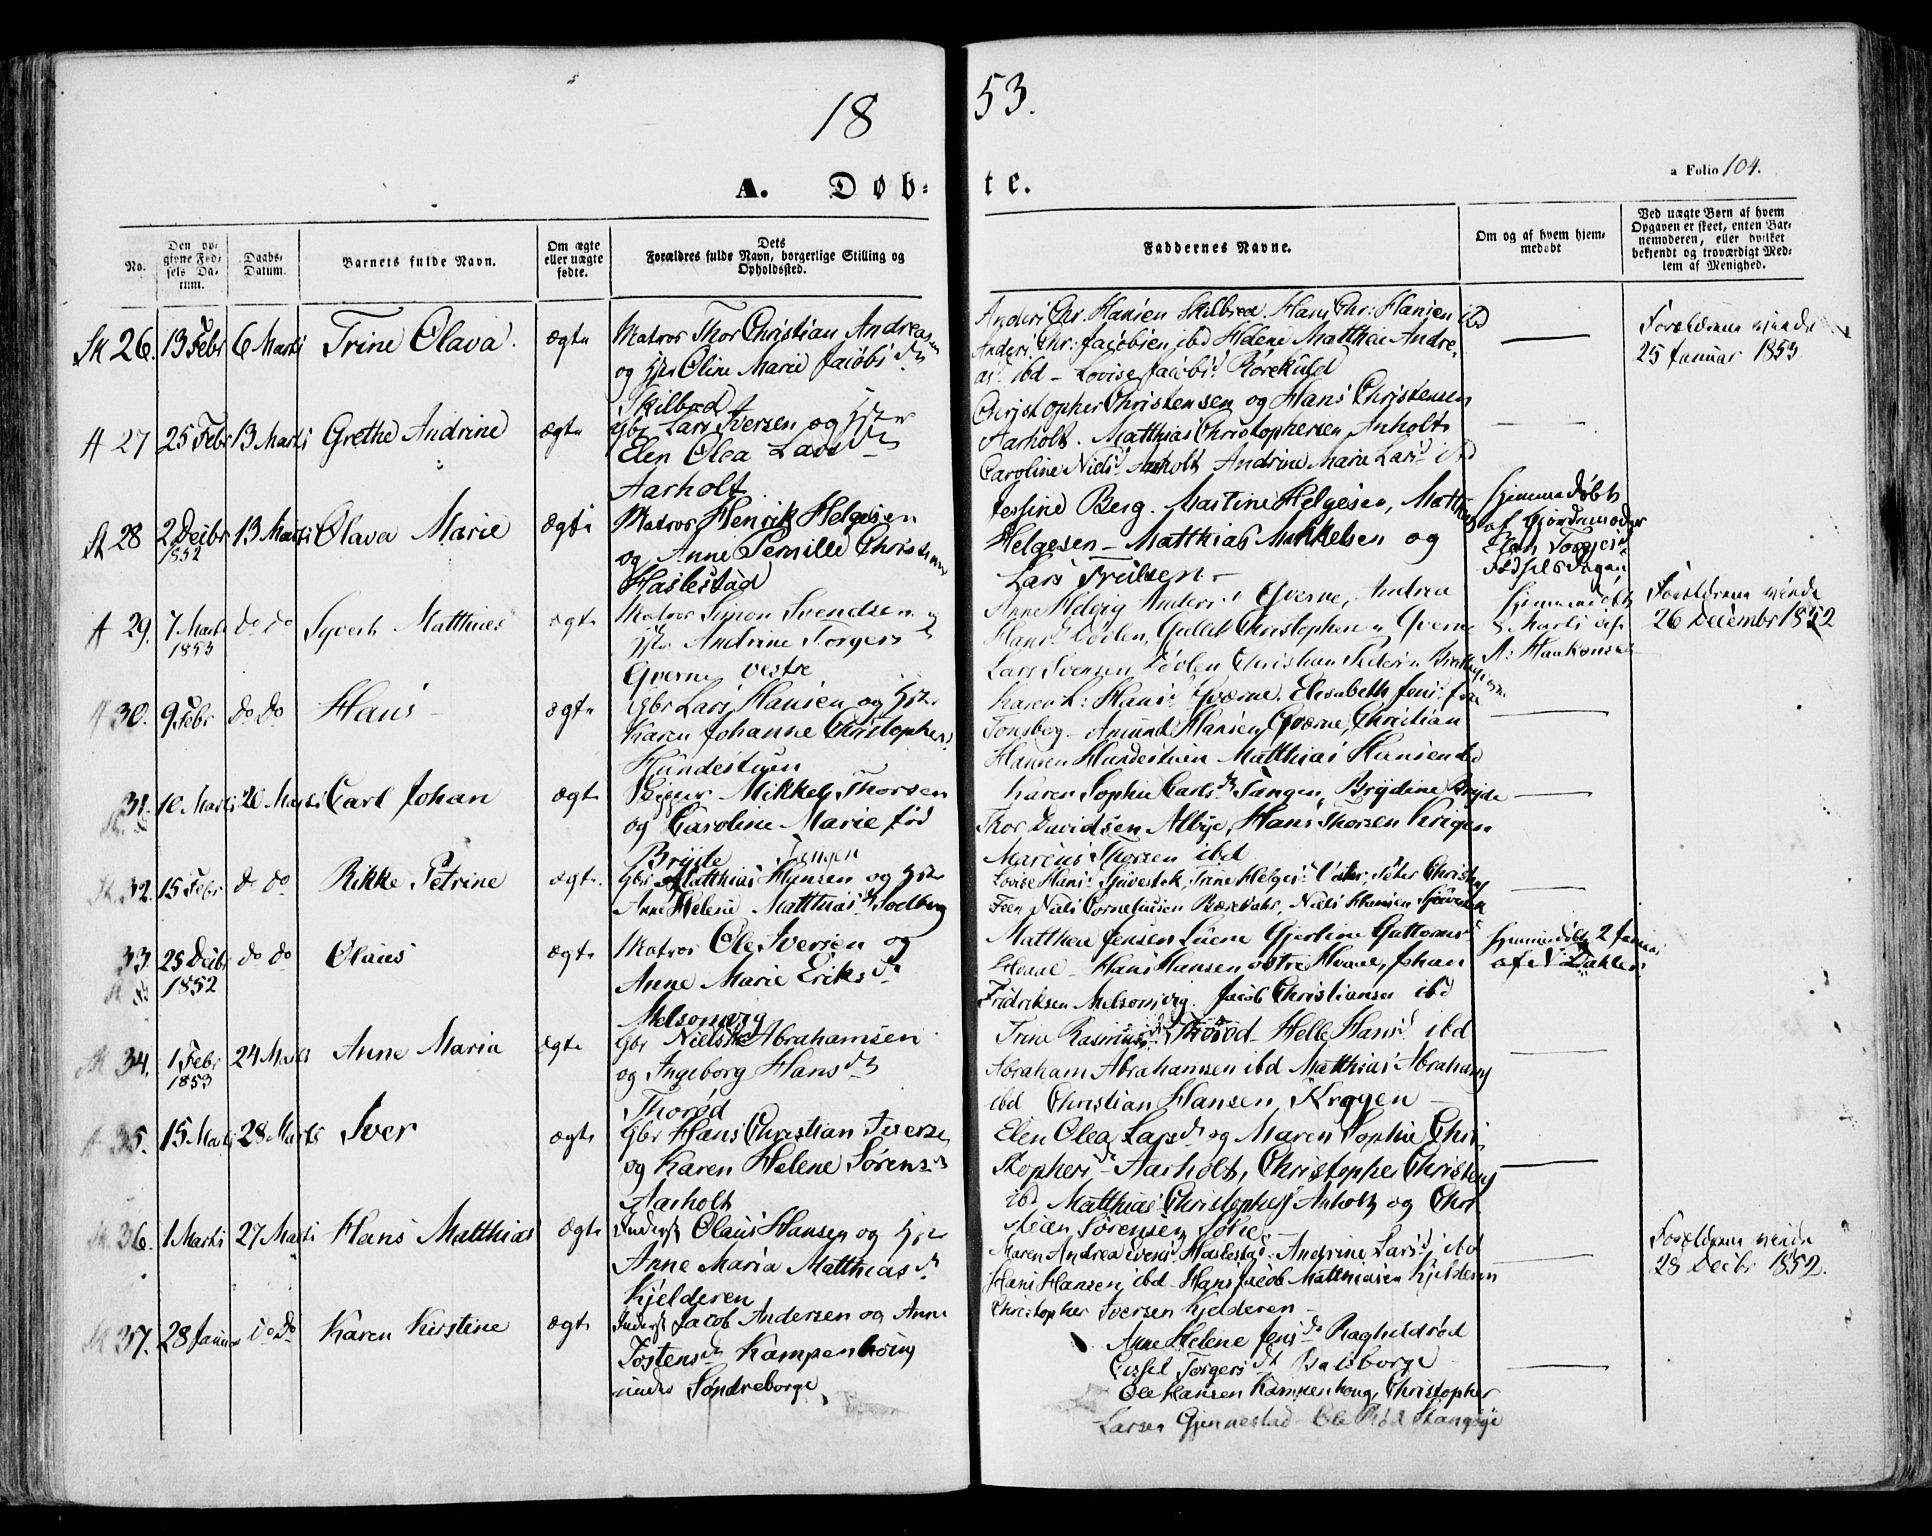 18
53.
a Folio 104.
A. Døb=
te.
No.
Den op=
givne Fød=
sels Da=
tum.
Daabs=
Datum.
Barnets fulde Navn.
Om ægte
eller uægte
fødte.
Dets
Forældres fulde Navn, borgerlige Stilling og
Opholdssted.
Faddernes Navne.
Om og af hvem hjem=
medøbt
Ved uægte Børn af hvem
Opgaven er skeet, enten Bar=
nemoderen, eller hvilket
bekjendt og troværdigt Med=
lem af Menighed.
26. 13 Febr 6 Marts Trine Olava. ægte
Matros Thor Christian Andreasen
og Hstr Oline Marie Jacobsdtr
Skilbred
Anders Chr. Hansen Skilbred. Hans Chr: Hansen ibd
Anders Chr: Jacobsen ibd Helene Matthea Andre-
asd ibd - Lovise Jacobsd Rørekuld
Forældrene viede
25 Januar 1853
A 27 25 Febr 13 Marts Grethe Andrine ægte
Gbr Lars Iversen og Hstr
Elen Olea Larsdtr
Aarholt
Christopher Christensen og Hans Christensen
Aarholt. Matthias Christophersen Anholt
Caroline Nielsd Aarholt Andrine Marie Larsd ibd
28 2 Decbr 13 Marts Olava Marie ægte
1852
Matros Henrik Helgesen
og Anne Pernille Christens
Haslestad
Berg. Martine Helgesen, Matth
Helgesen - Matthias Mikkelsen og
Lars Troilsen -
Hjemmedøbt
af Gjordemoder
Elen Torgersd
Fødselsdagen
A 29. 7 Marts do do Syvert Matthias ægte
1853
Matros Simon Svendsen og
Hstr Andrine Torgersd
Gverne vestre
Anne Helvig Andersd Gverne, Andrea
Hansd Døvlen, Gullet Christophersen Gverne
Lars Svensen Døvlen Christian
Hjemmedøbt
8 Marts af
A: Haakonsen
Forældrene viede
26 Decembr 1852
A 30. 9 Febr do do Hans - ægte
Gbr Lars Hansen og Hstr
Karen Johanne Christophers
Hundestuen
Karen L: Hansd Gverne. Elisabeth Jensd fra
Tønsberg - Amund Hansen Gverne, Christian
Hansen Hundestuen Matthias Hansen ibd
31. 10 Marts 20 Marts Carl Johan ægte
Mikkel Thorsen
og Caroline Marie fød
Bryde Tangen
Karen Sophie Carlsdtr Tangen, Brydine Bryde
Thor Davidsen Albye, Hans Thorsen Krigen
Marcus Thorsen ibd
32. 15 Febr do do Rikke Petrine ægte.
Gbr Matthias Hansen og Hstr
Anne Helene Matthiasd Solberg
Lovise Hansd Sjuestok, Trine Helgesd
Feen Niels Corneliusen Niels Hansen
33. 25 Decbr do do Olaus ægte
1852
Matros Ole Iversen og
Anne Marie Eriksdtr
Melsomvig
Matthea Jensen Luene Gjertine Guttormsd
Hvaal - Hans Hansen østre Hvaal, Johan
Fridriksen Melsomvig. Jacob Christiansen ibd
Hjemmedøbt 2 Januar
af N. Dahler
34. 1 Febr 24 Marts Anne Maria ægte
1853
Gbr Niels Abrahamsen
og Ingeborg Hansdtr
Thorød
Trine Rasmusd Thorød - Helle Hansd ibd
Abraham Abrahamsen ibd Matthias Abrahams
ibd Christian Hansen, Krogen -
A 35. 15 Marts 28 Marts Iver ægte
Gbr Hans Christian Iversen
og Karen Helene Sørensd
Aarholt
Elen Olea Larsdtr og Maren Sophie Chri
stophersdtr Aarholt, Christopher Christens
ibd, Matthias Christophers Anholt og Chri
stian Sørensen Solie -
36. 1 Marts 27 Marts Hans Matthias ægte
Inderst Olaus Hansen og Hstr
Anne Maria Matthiasdtr
Kjelderen
Maren Andrea Iversd Haslestad. Andrine Larsd ibd
Hans Hansen ibd - Hans Jacob Matthiasen Kjelderen
Christopher Iversen Kjelderen -
Forældrene viede
28 Decbr 1852.
37. 28 Januar do Do Karen Kirstine ægte
Inderst Jacob Andersen og Anne
Jostensdtr Kampenhoug
under Søndreborge,
Anne Helene Jensdtr Ragheldrød
Cissel Torgersdtr Bakborge
Ole Hansen Kampenhoug, Christopher
Larsen Gjennestad - Ole Rød